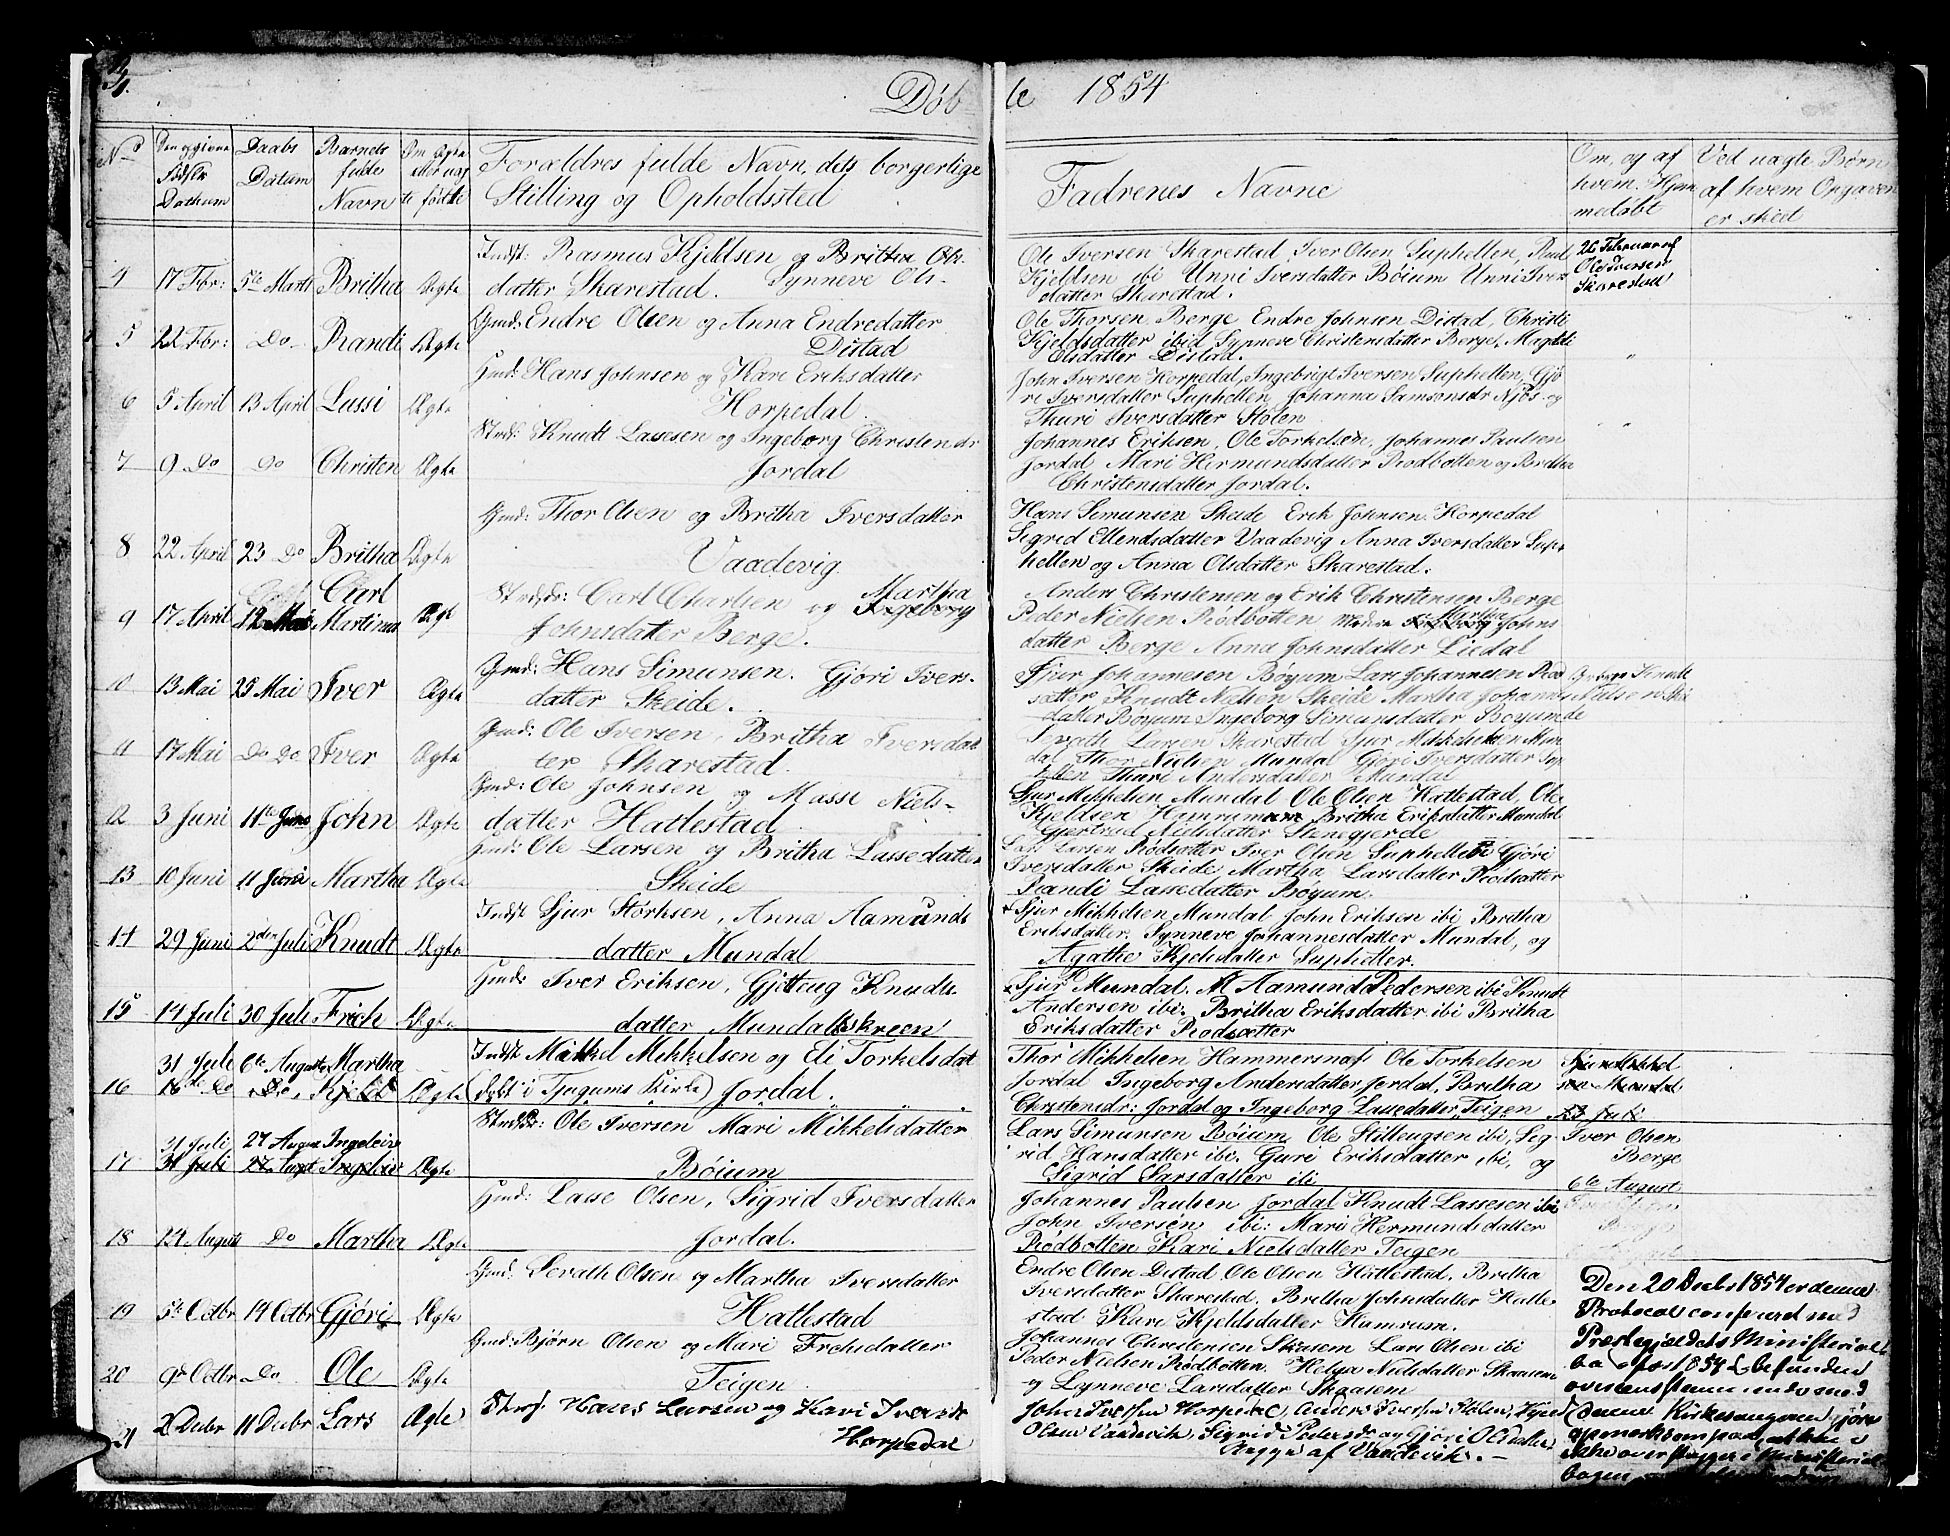 Døbte 1854
No
Den og given Fødsels Dathum
Daabs Datum
Barnets fulde Navn
Om Ægte eller uægte fødte
Forældres fulde Navn, dets borgerlige Stilling og Opholdssted
Fadrenes Navne
Om, og af hvem Hjemmedøbt
Ved uægte Børn af hvem Opgaven er skied
4 17 Fbr: 5te Marts Britha Ægte
Indst: Rasmus Kjeldsen og Britha Ols-
datter Skarestad. Synneve Ols-
Ole Iversen Skarestad Iver Olsen Suphellen, Poul
Kjeldsen ibi Unni Iversdatter Bøium Unni Ivers
datter Skarestad.
26 Februar af
Ole Iversen
Skarestad
5 22 Fbr: Do Randi Ægte
Gmd: Endre Olsen og Anna Endredatter
Distad
Ole Thorsen Berge Endre Johnsen Distad, Christi
Kjeldsdatter ibid Synneve Christensdatter Berge, Magdeli
Olsdatter Distad.
6 5 April 13 April Lussi Ægte
Gmd: Hans Johnsen og Kari Eriksdatter
Horpedal
John Iversen Horpedal, Ingebrigt Iversen Suphellen, Gjø
ri Iversdatter Suphellen, Johanna Samsonsdr Njøs og
Thuri Iversdatter Stølen
7 9 Do Do Christen Ægte
Knudt Lassesen og Ingeborg Christendr
Jordal
Johannes Eriksen, Ole Torkelsen, Johannes Paulsen
Jordal Mari Hermundsdatter Rødbotten og Britha
Christensdatter Jordal.
8 22 April 23 Do Britha Ægte
Gmd: Thor Olsen og Britha Iversdatter
Vaadevig
Hans Simunsen Skeide Erik Johnsen Horpedal
Sigrid Ellendsdatter Vaadevig Anna Iversdatter Sup-
hellen og Anna Olsdatter Skarestad.
9 17 April 12 Mai Carl Martinus Ægte
Carl Charlsen og Martha Ingeborg
Johnsdatter Berge.
Anders Christensen og Erik Christensen Berge
Peder Nielsen Rødbotten Martha Ingeborg Johns
datter Berge Anna Johnsdatter Liedal
10 13 Mai 25 Mai Iver Ægte
Gmd: Hans Simunsen. Gjøri Ivers-
datter Skeide.
Sjur Johannesen Bøyum Lars Johannesen Rød
sætter Knudt Nielsen Skeide Martha Johannes
datter Bøyum Ingeborg Simunsdatter Boyum
Knudt
Nielsen Skei
de
11 17 Mai Do Do Iver Ægte
Gmd: Ole Iversen, Britha Iversdat
ter Skarestad.
Lassen Skarestad Sjur Mikkelsen Mun
dal Thor Nielsen Mundal Gjøri Iversdatter Sup
hellen Thuri Andersdatter Mundal
12 3 Juni 11te Juni John Ægte
Gmd: Ole Johnsen og Massi Niels-
datter Hatlestad
Sjur Mikkelsen Mundal Ole Olsen Hatlestad, Ole
Kjeldsen Hamrum Britha Eriksdatter Mundal
Gjertrud Nielsdatter Stenegjerde
13 10 Juni 11 Juni Martha Ægte
Gmd: Ole Larsen og Britha Lassedatter
Skeide
Lars Larsen Rødsætter Iver Olsen Suphellen Gjøri
Iversdatter Skeide, Martha Larsdatter Rødsætter
Randi Lassedatter Bøyum.
14 29 Juni 2den Juli Knudt Ægte
Indst Sjur Størksen, Anna Aamunds
datter Mundal
Sjur Mikkelsen Mundal John Eriksen ibi Britha
Eriksdatter. Synneve Johannesdatter Mundal, og
Agathe Kjelsdatter Suphetter.
15 14 Juli 30 Juli Frich Ægte
Gmd: Iver Eriksen, Gjetteug Knuds-
datter Mundalsskreen
Sjur Mundal. Aamund Pedersen ibi Knudt
Andersen ibi. Britha Eriksdatter ibi Britha
Eriksdatter Rødsætter
31 Juli 6te Auguste Martha
16 16de Do Do, Kjeld Ægte
Indst Mikkel Mikkelsen og Eli Torkelsdat
(døbt i Tjugums Kirke) Jordal.
Thor Mikkelsen Hammersnæs Ole Torkelsen
Jordal Ingeborg Andersdatter Jordal, Britha
Christensdr: Jordal og Ingeborg Lassedatter Teigen
Sjur Mikkel
sen Mundal
23 Juli
31 Juli 27 August Ingeleiv
17 31 Juli 27 Augst Ingeleiv Ægte
Ole Iversen Mari Mikkelsdatter
Bøium
Lars Simunsen Bøium Ole Stilleugsen ibi, Sig
rid Hansdatter ibi. Guri Eriksdatter ibi, og
Sigrid Larsdatter ibi
Iver Olsen
Berge
6te August
18 14 August Do Martha Ægte
Gmd: Lasse Olsen, Sigrid Iversdatter
Jordal.
Johannes Paulsen Jordal Knudt Lassesen ibi
John Iversen ibi: Mari Hermundsdatter
Rødbotten Kari Nielsdatter Teigen
Iver Olsen
Berge
19 5te Octbr 14 Octbr Gjøri Ægte
Gmd: Sevath Olsen og Martha Iversdatter
Hatlestad
Endre Olsen Distad Ole Olsen Hatlestad, Britha
Iversdatter Skarestad, Britha Johnsdatter Hatle
stad Kari Kjeldsdatter Hamrum.
20 9de Octbr Do Ole Ægte
Gmd: Bjørn Olsen og Mari Frichsdatter
Teigen
Johannes Christensen Skasem Lars Olsen ibi
Peder Nielsen Rødbotten. Helga Nielsdatter Skaasem
og Synneve Larsdatter Skaasem
21 2 Decbr 11 Decbr Lars Ægte
Hans Larsen og Kari Iversdr
Horpedal
John Iversen Horpedal, Anders Iversen Stølen,
Olsen Vaadevik, Sigrid Pedersdr og Gjøri Olsdatter,
Begge af Vaadevik. —
Den 20 Decbr 1854 er denne
Protocol confereret med
Præstegjeldets Ministerial
bog for 1854 & befunden
overensstemmende med
denne Kirkesangeren gjøres
opmærksom paa, at
ikke i Ministerial
bogen